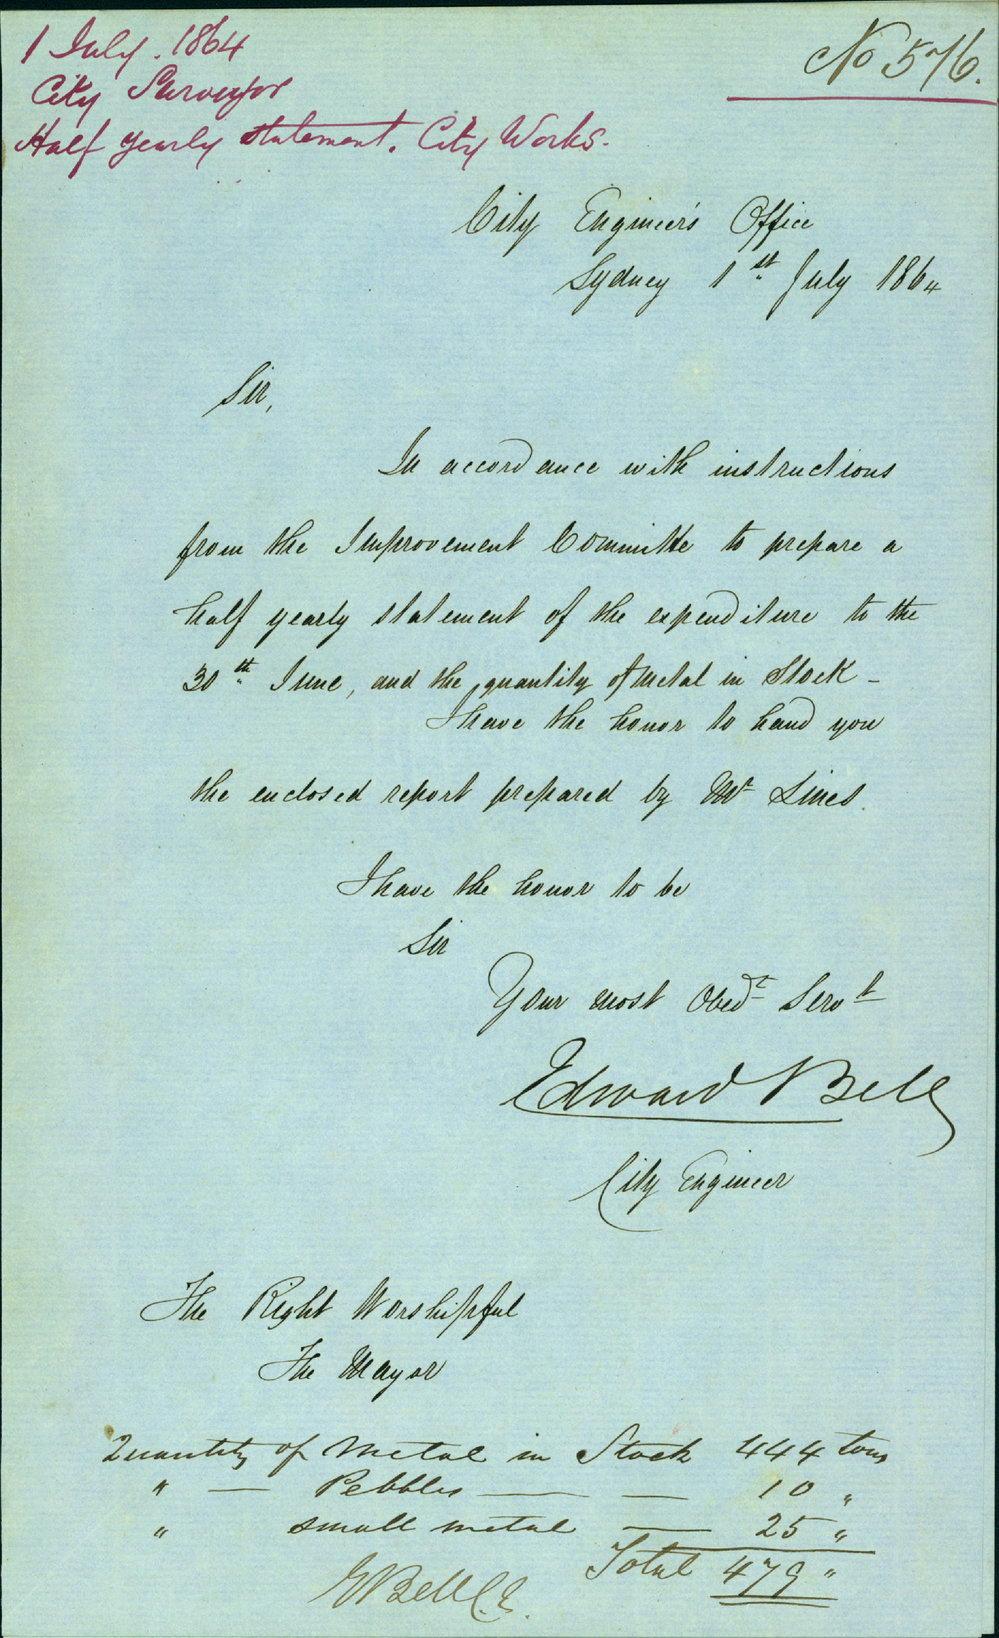 1 July. 1864
City Surveyor
Half yearly statement. City Works.
No 576.
City Engineer's Office
Sydney 1st July 1864
Sir,
In accordance with instructions
from the Improvement Committee to prepare a
half yearly statement of the expenditure to the
30th June, and the quantity of metal in Stock -
I have the honor to hand you
the enclosed report prepared by Mr Lines.
I have the honor to be
Sir
Your most Obedt Servt
Edward Bell
City Engineer
The Right Worshipful
The Mayor
Quantity of Metal in Stock 444 tons
" — Pebbles — — 10 "
" small metal — 25 "
Total 479 "
E Bell C.E.